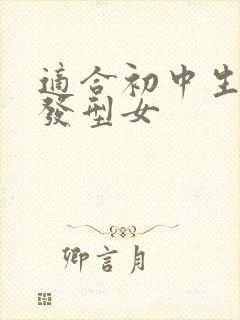 適合初中生
發型女
卿言月